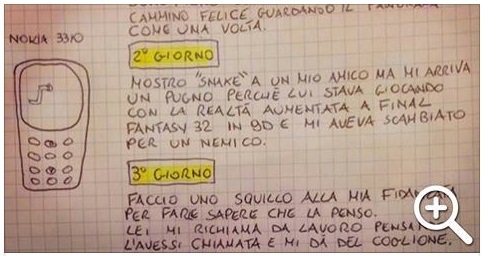 CAMMINO FELICE GUARDANDO IL
COME UNA VOLTA.
NOKIA 3310
2° GIORNO
MOSTRO "SNAKE" A UN MIO AMICO MA MI ARRIVA
UN PUGNO PERCHÈ LUI STAVA GIOCANDO
CON LA REALTÀ AUMENTATA A FINAL
FANTASY 32 IN 9D E MI AVEVA SCAMBIATO
PER UN NEMICO.
3° GIORNO
FACCIO UNO SQUILLO ALLA MIA
PER FARE SAPERE CHE LA PENSO.
LEI MI RICHIAMA DA LAVORO
L'AVESSI CHIAMATA E MI DÀ DEL COGLIONE.